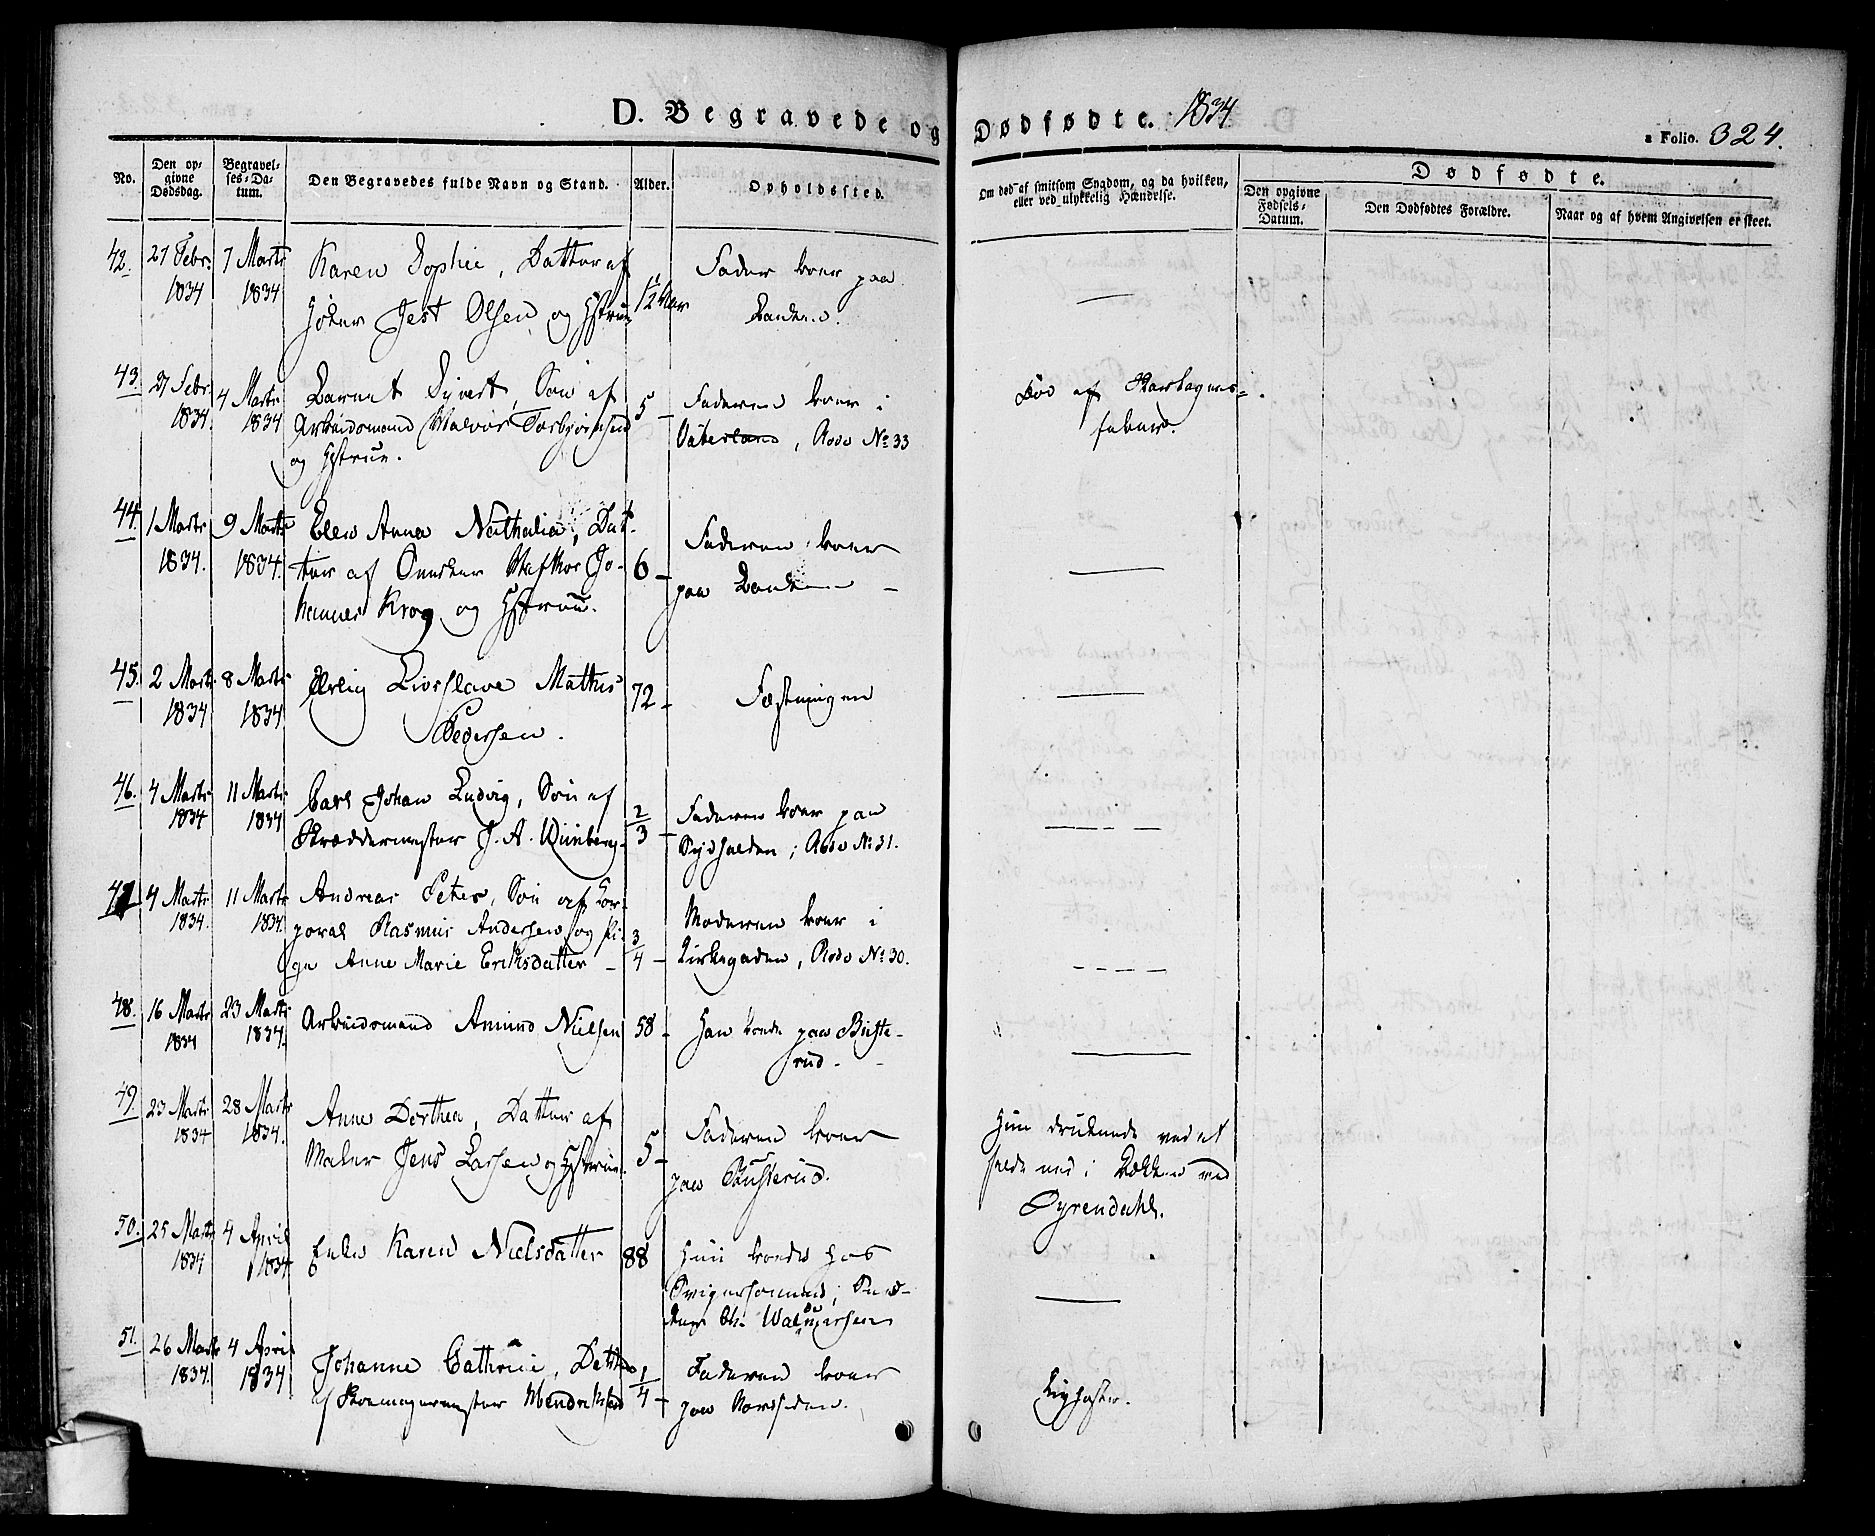 D. Begravede og Dødfødte. 1834
a Folio. 324.
No.
Den opgivne Dødsdag.
Begravelses-Datum.
Den Begravedes fulde Navn og Stand.
Alder.
Opholdssted.
Om død af smitsom Sygdom, og da hvilken,
eller ved ulykkelig Hændelse.
Dødfødte.
Den opgivne Fødsels-Datum.
Den Dødfødtes Forældre.
Naar og af hvem Angivelsen er skeet.
42. 27 Febr. 7 Marts Karen Sophie, Datter af Fader boer paa
1834 1834 Jest Olsen og Hstrue 1/2 Aar Banken.
43. 27 Febr. 4 Marts Barnet Syvert, Søn af 5 - Faderen boer i Død af
1834. 1834 Arbeidsmand Halvor Torbjørnsen Vaterland, Rode No 33
og Hstrue.
44. 1 Marts 9 Marts Elen Anna Nathalia, Dat- Faderen boer
1834. 1834. ter af Jo- 6 - paa Banken -
hannes Krog og Hstrue.
45. 2 Marts 8 Marts Ærlig Livsslave Mathis 72 - Fæstningen
1834 1834 Pedersen.
46. 4 Marts 11 Marts Carl Johan Ludvig, Søn af 2/3 - Faderen boer paa
1834 1834 Skræddermester J. A. Winberg. Sydsalden; Rode No 31.
47 4 Marts 11 Marts Andreas Peter, Søn af Kor- Moderen boer i
1834. 1834. poral Rasmus Andersen og Pi- 3/4 - Kirkegaden, Rode No 30.
ge Anne Marie Eriksdatter -
48. 16 Marts 23 Marts Arbeidsmand Amund Nielsen 58 - Han boede paa Buste-
1834 1834. rud. -
49. 23 Marts 28 Marts Anne Dorthea, Datter af 5 - Faderen boer Hun druknede ved at
1834 1834. Maler Jens Larsen og Hstrue. paa Busterud. falde ned i Bækken ved
Øyrendahl.
50. 25 Marts 4 April Enke Karen Nielsdatter 88 Hun boede hos
1834 1834 Svigersønnen,
Walgersen
51. 26 Marts 4 April Johanne Cathrine, Datter 1/4 - Faderen boer Kighoste.
1834. 1834 af Skomagermester Hendriksen paa Nordsiden.